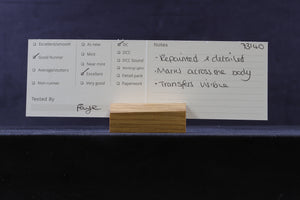 Excellent/unsent
Good Runner
Average/visitors
Non-runner
Tested By
Faye
As new
Mint
Near mint
Excellent
Very good
DC
DCC
DCC Sound
Working Lights
Detail pack
Paperwork
Notes
73140
- Repainted & detailed
- Marks across the body
- Transfers visible